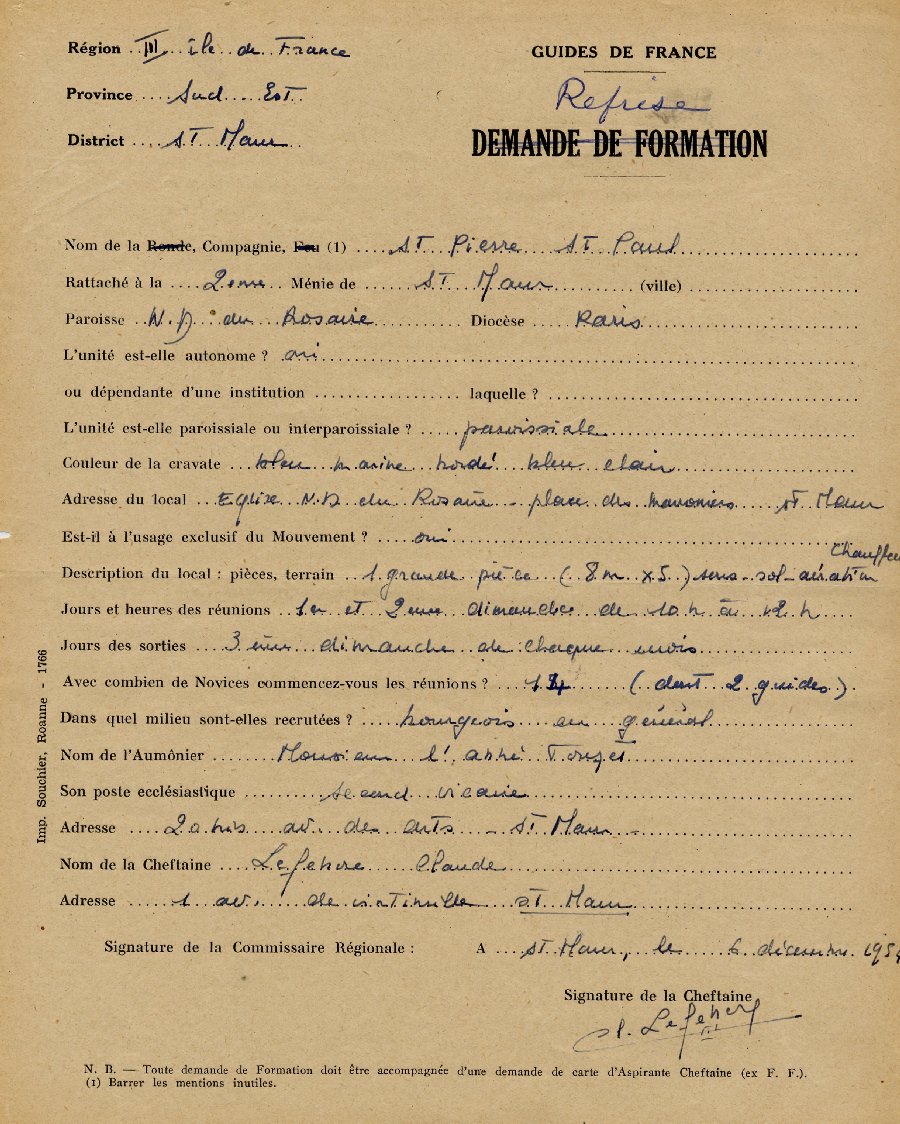 Région III île de France
Province Sud Est
District ST Maur
GUIDES DE FRANCE
Reprise
DEMANDE DE FORMATION
Nom de la Ronde, Compagnie, Feu (1) ST Pierre ST Paul
Rattaché à la 2ème Ménie de ST Maur (ville)
Paroisse N.D du Rosaire Diocèse Paris
L'unité est-elle autonome ? oui
ou dépendante d'une institution laquelle ?
L'unité est-elle paroissiale ou interparoissiale ? paroissiale
Couleur de la cravate bleu marine bordé bleu clair
Adresse du local Eglise N.D du Rosaire - place des marroniers ST Maur
Est-il à l'usage exclusif du Mouvement ? oui
Description du local : pièces, terrain 1 grande pièce (8m x 5) sous-sol-aération
Jours et heures des réunions 1er et 2ème dimanche de 10 h à 12 h
Jours des sorties 3ème dimanche de chaque mois
Avec combien de Novices commencez-vous les réunions ? 14 (dont 2 guides).
Dans quel milieu sont-elles recrutées ? bourgeois en général
Nom de l'Aumônier Monsieur l'abbé
Son poste ecclésiastique second vicaire
Adresse 20 bis av. des arts - ST Maur -
Nom de la Cheftaine Lefebvre Claude
Adresse 1 av. de ST Maur
Signature de la Commissaire Régionale : A ST Maur, le 6 décembre 195
Signature de la Cheftaine
Cl. Lefebvre
N. B. — Toute demande de Formation doit être accompagnée d'une demande de carte d'Aspirante Cheftaine (ex F. F.).
(1) Barrer les mentions inutiles.
Imp. Souchier, Roanne - 1766